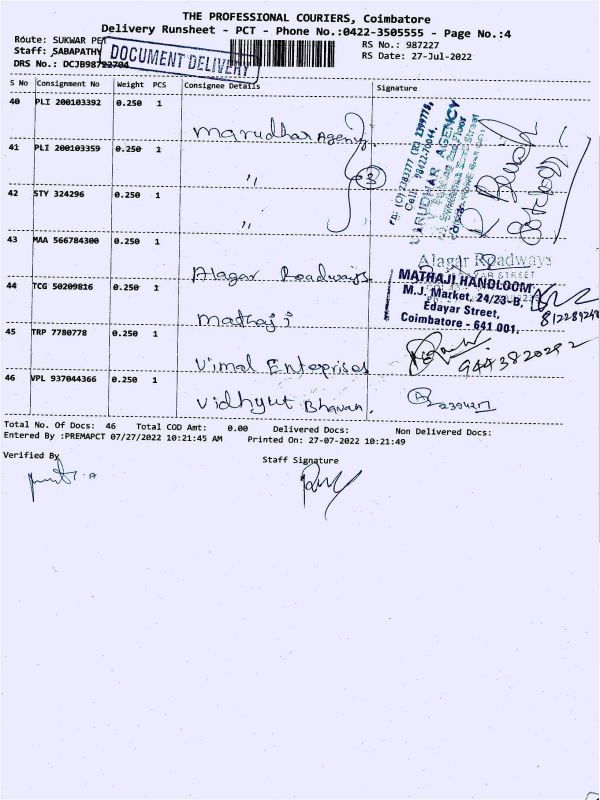 THE PROFESSIONAL COURIERS, Coimbatore
Delivery Runsheet - PCT - Phone No.:0422-3505555 - Page No.:4
Route: SUKWAR PET
RS No.: 987227
Staff: SABAPATHY
RS Date: 27-Jul-2022
DOCUMENT DELIVERY
DRS No.: DCJB98722704
S No Consignment No Weight PCS Consignee Details Signature
40 PLI 200103392 0.250 1 Marudhar Agency
41 PLI 200103359 0.250 1 ,,
3
42 STY 324296 0.250 1 ,,
MARUDHAR AGENCY
43 MAA 566784300 0.250 1 Alagar Roadways
Alagar Roadways
44 TCG 50209816 0.250 1 Mathaji
MATHAJI HANDLOOM
M.J. Market, 24/23-B,
Edayar Street,
Coimbatore - 641 001.
45 TRP 7780778 0.250 1 Vimal Enterprises
9443820292
46 VPL 937044366 0.250 1 Vidhyut Bhavan.
Total No. Of Docs: 46 Total COD Amt: 0.00 Delivered Docs: Non Delivered Docs:
Entered By :PREMAPCT 07/27/2022 10:21:45 AM Printed On: 27-07-2022 10:21:49
Verified By
Staff Signature